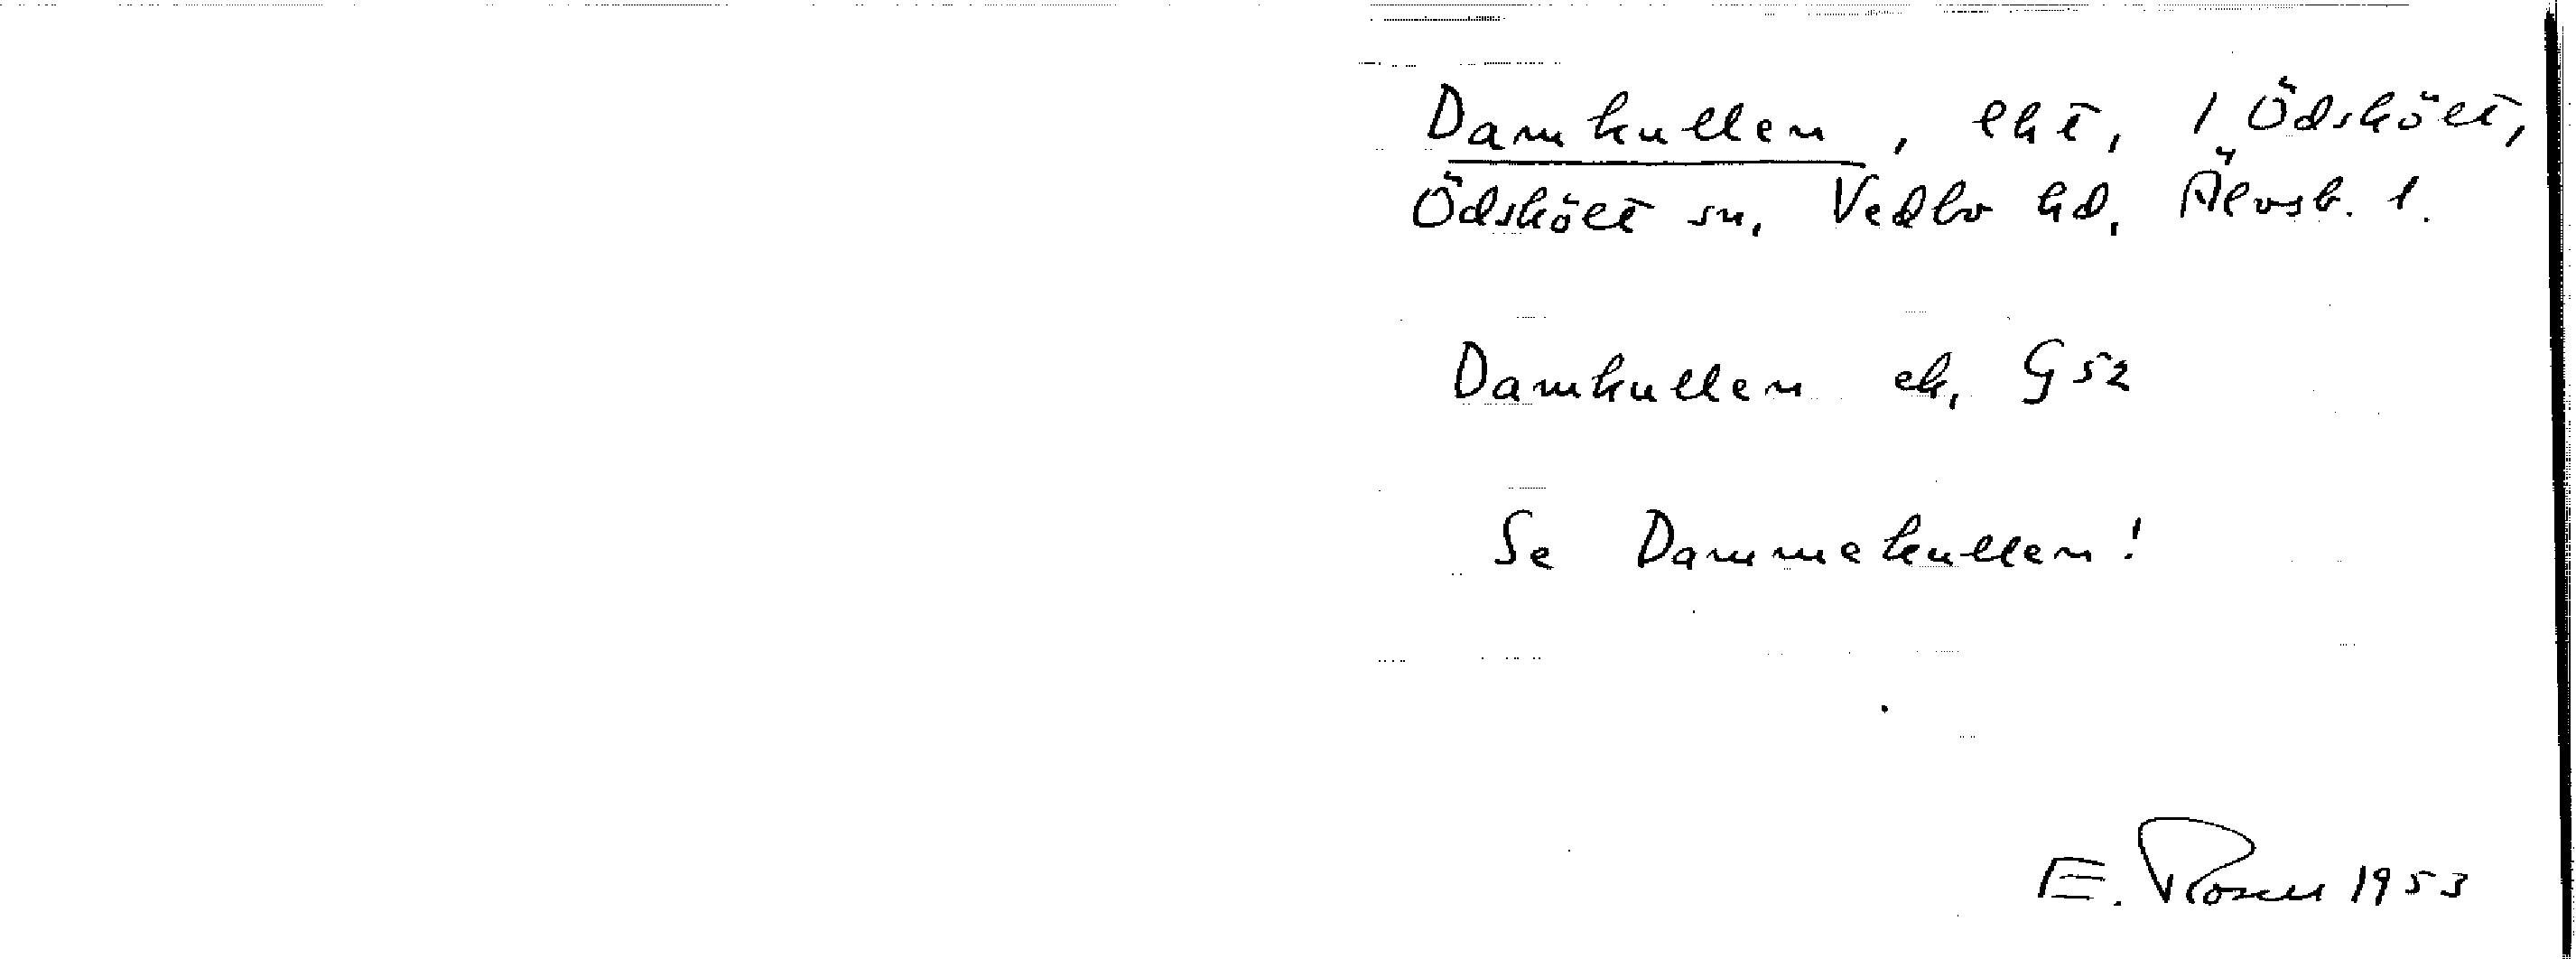 Damkullen, lht, i Ödskölt,
Ödskölt sn, Vedbo hd, Älvsb. l.
Damkullen ek, G 52
Se Dammekullen!
E. Rosell 1953